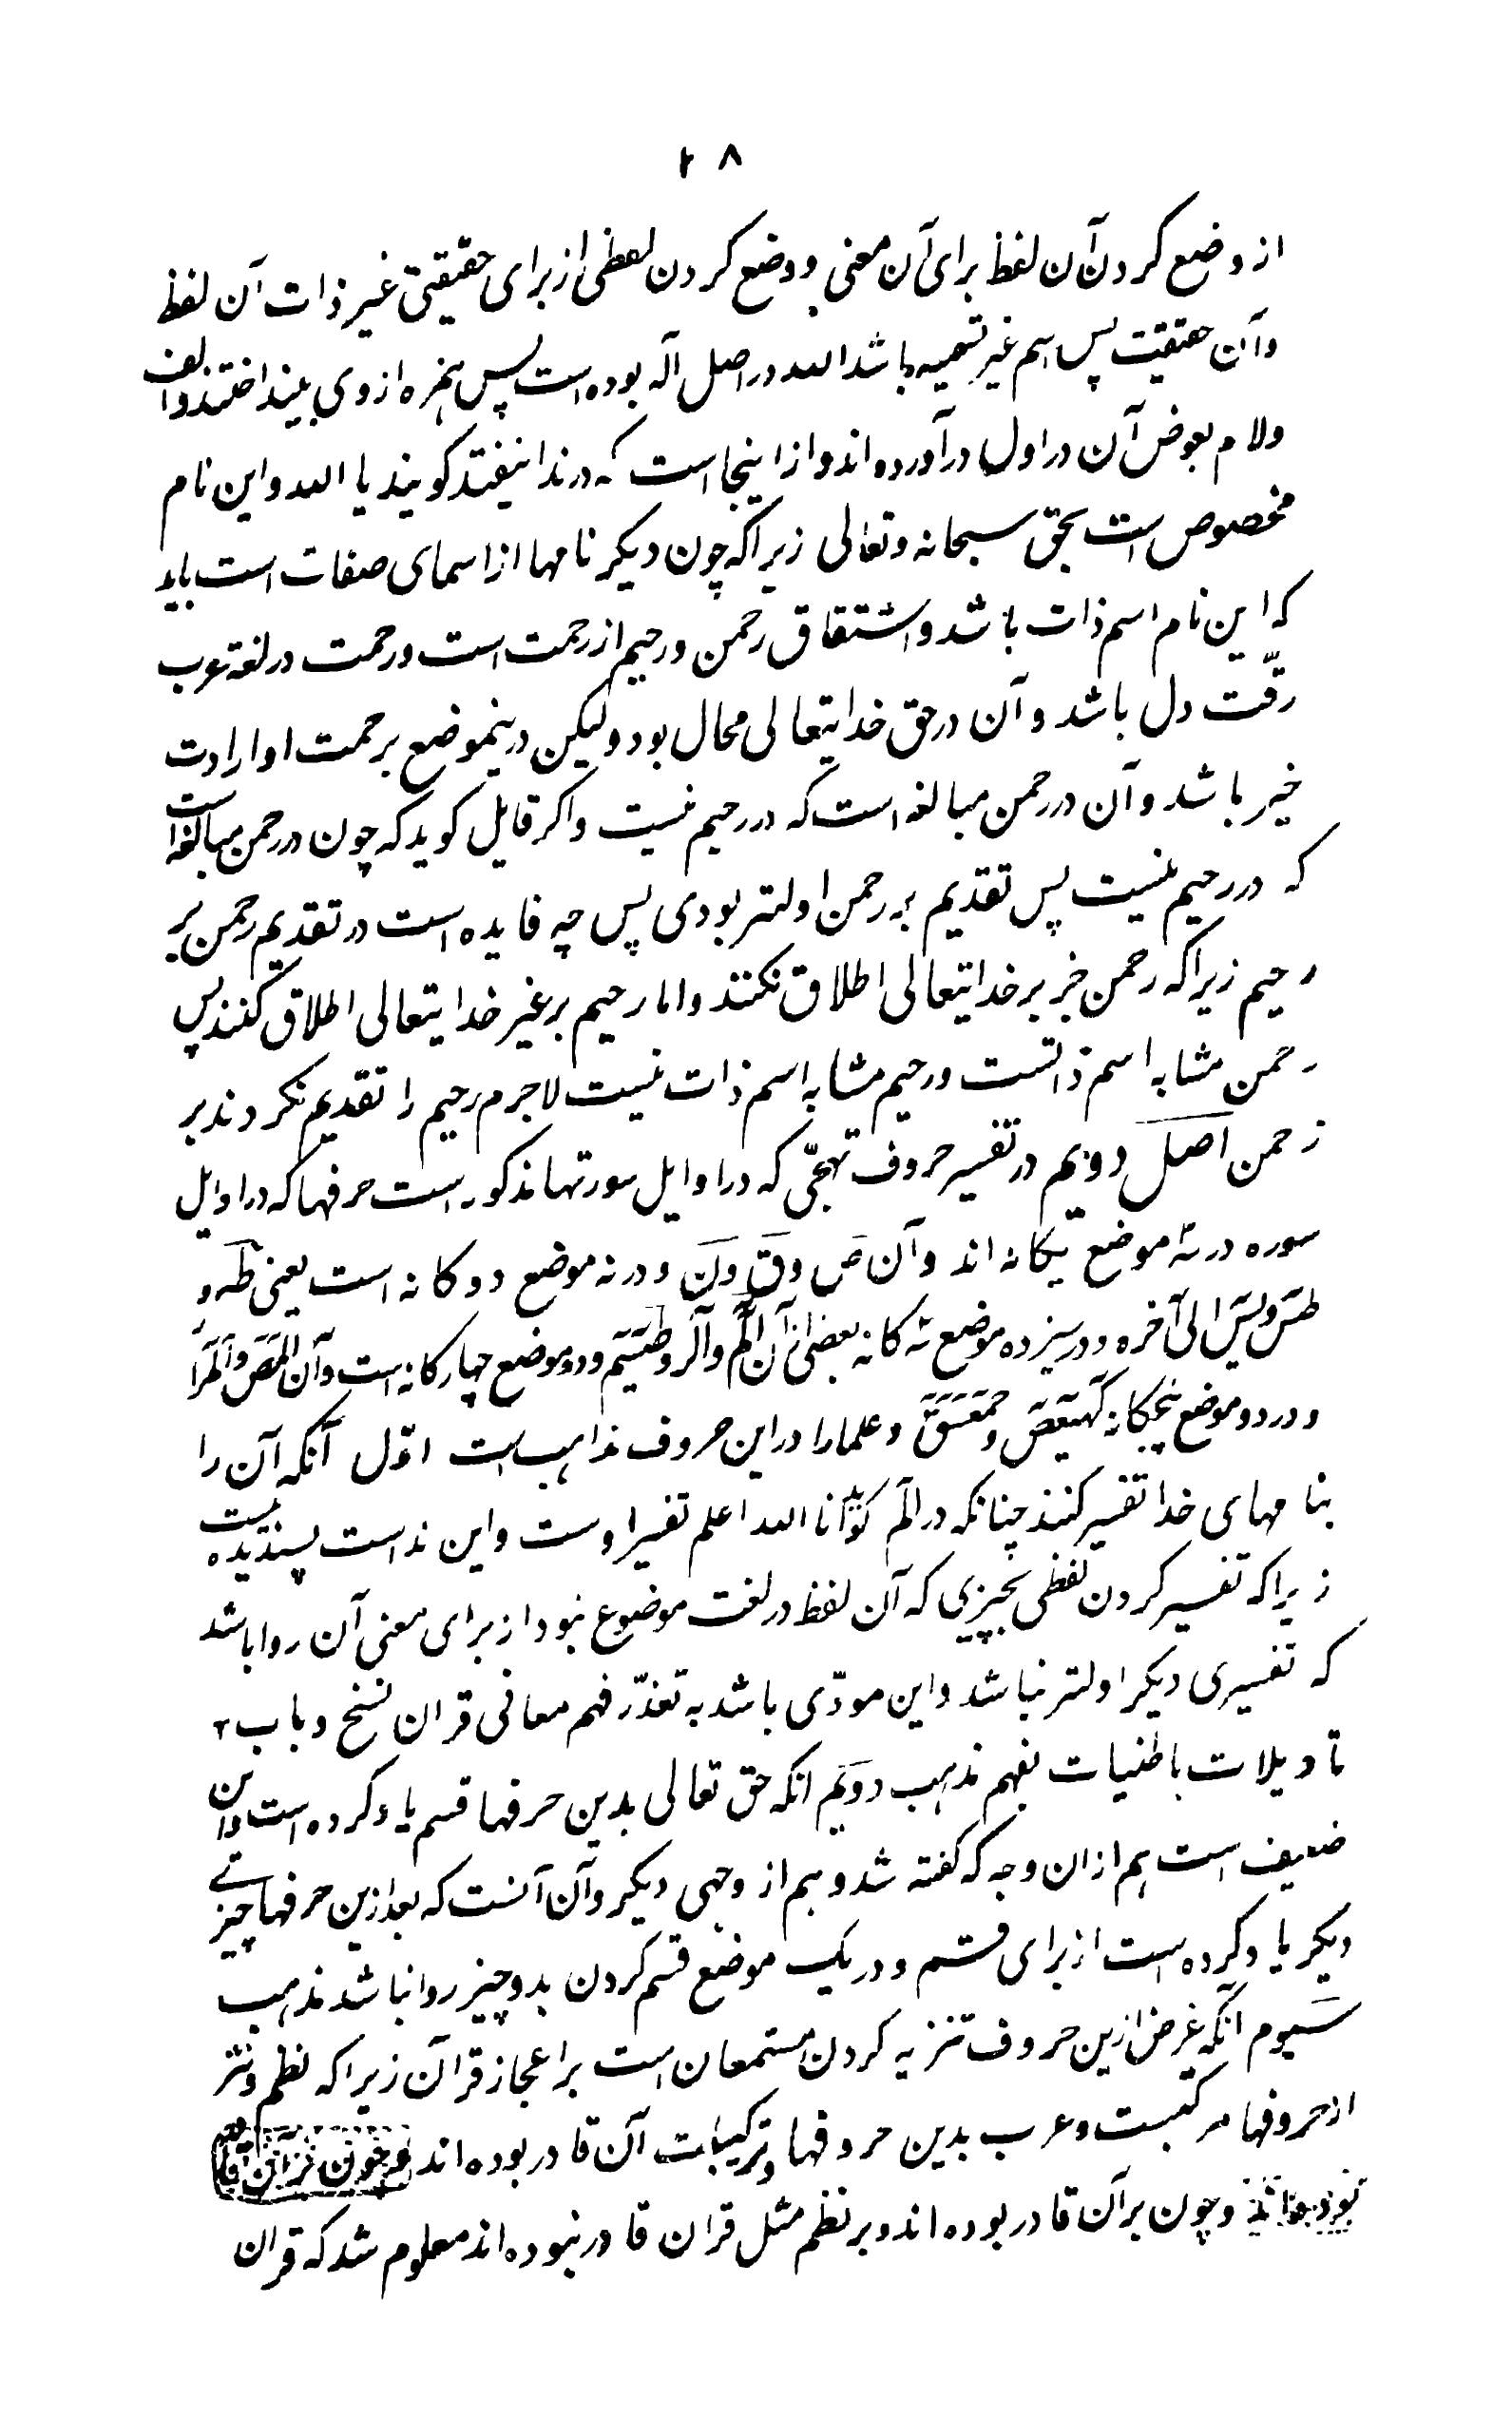 ۲۸
از وضع کردن آن لفظ برای آن معنی و وضع کردن لفظی از برای حقیقتی غیر ذات آن لفظ
و آن حقیقت پس اسم غیر تسمیه باشد الله در اصل اله بوده است پس همزه از وی بینداختند و الف
و لام بعوض آن در اول درآورده اند و از اینجا است که در ندا نیفتد کویند یا الله و این نام
مخصوص است بحق سبحانه و تعالی زیرا که چون دیکر نامها از اسمای صفات است باید
که این نام اسم ذات باشد و اشتقاق رحمن و رحیم از رحمت است و رحمت در لغة عرب
رقّت دل باشد و آن در حق خدایتعالی محال بود ولیکن درینموضع بر حمت او ارادت
خیر باشد و آن در رحمن مبالغه است که در رحیم نیست و اکر قایل کوید که چون در رحمن مبالغه است
که در رحیم نیست پس تقدیم به رحمن اولتر بودی پس چه فایده است در تقدیم رحمن بر
رحیم زیرا که رحمن جز بر خدایتعالی اطلاق نکنند و اما رحیم بر غیر خدایتعالی اطلاق کنند پس
رحمن مشابه اسم ذاتست و رحیم مشابه اسم ذات نیست لاجرم رحیم را تقدیم نکردند بر
رحمن اصل دویم در تفسیر حروف تهجّی که در اوایل سورتها مذکور است حرفها که در اوایل
سوره در سه موضع یکانه اند و آن ص و ق و ن و در نه موضع دوکانه است یعنی طه و
طس و یس الی آخره و در سیزده موضع سه کانه بعضی از آن الم و الر و طسم و در دو موضع چهارکانه است و آن المص و المرا
و در دو موضع پنجکانه کهیعص و حمعسق و علما را در این حروف مذاهب است اوّل آنکه آن را
بنامهای خدا تفسیر کنند چنانکه در الم کویند انا الله اعلم تفسیر اوست و این نه است پسندیده نیست
زیرا که تفسیر کردن لفظی بچیزی که آن لفظ در لغت موضوع نبود از برای معنی آن روا باشد
که تفسیری دیکر اولتر نباشد و این مودّی باشد به تعذّر فهم معانی قران نسخ و باب
تاویلات باطنیات بفهم مذهب دویم انکه حق تعالی بدین حرفها قسم یاد کرده است و این
ضعیف است هم از ان وجه که کفته شد و هم از وجهی دیکر و آن آنست که بعد ازین حرفها چیزی
دیکر یاد کرده است از برای قسم و در یک موضع قسم کردن بدو چیز روا نباشد مذهب
سیوم آنکه غرض ازین حروف تنزیه کردن مستمعان است بر اعجاز قرآن زیرا که نظم و نثر
از حروفها مرکبست و عرب بدین حروفها و ترکیبات آن قادر بوده اند و چون بر آن قادر
نبوده اند و چون بر آن قادر بوده اند و بر نظم مثل قران قادر نبوده اند معلوم شد که قران